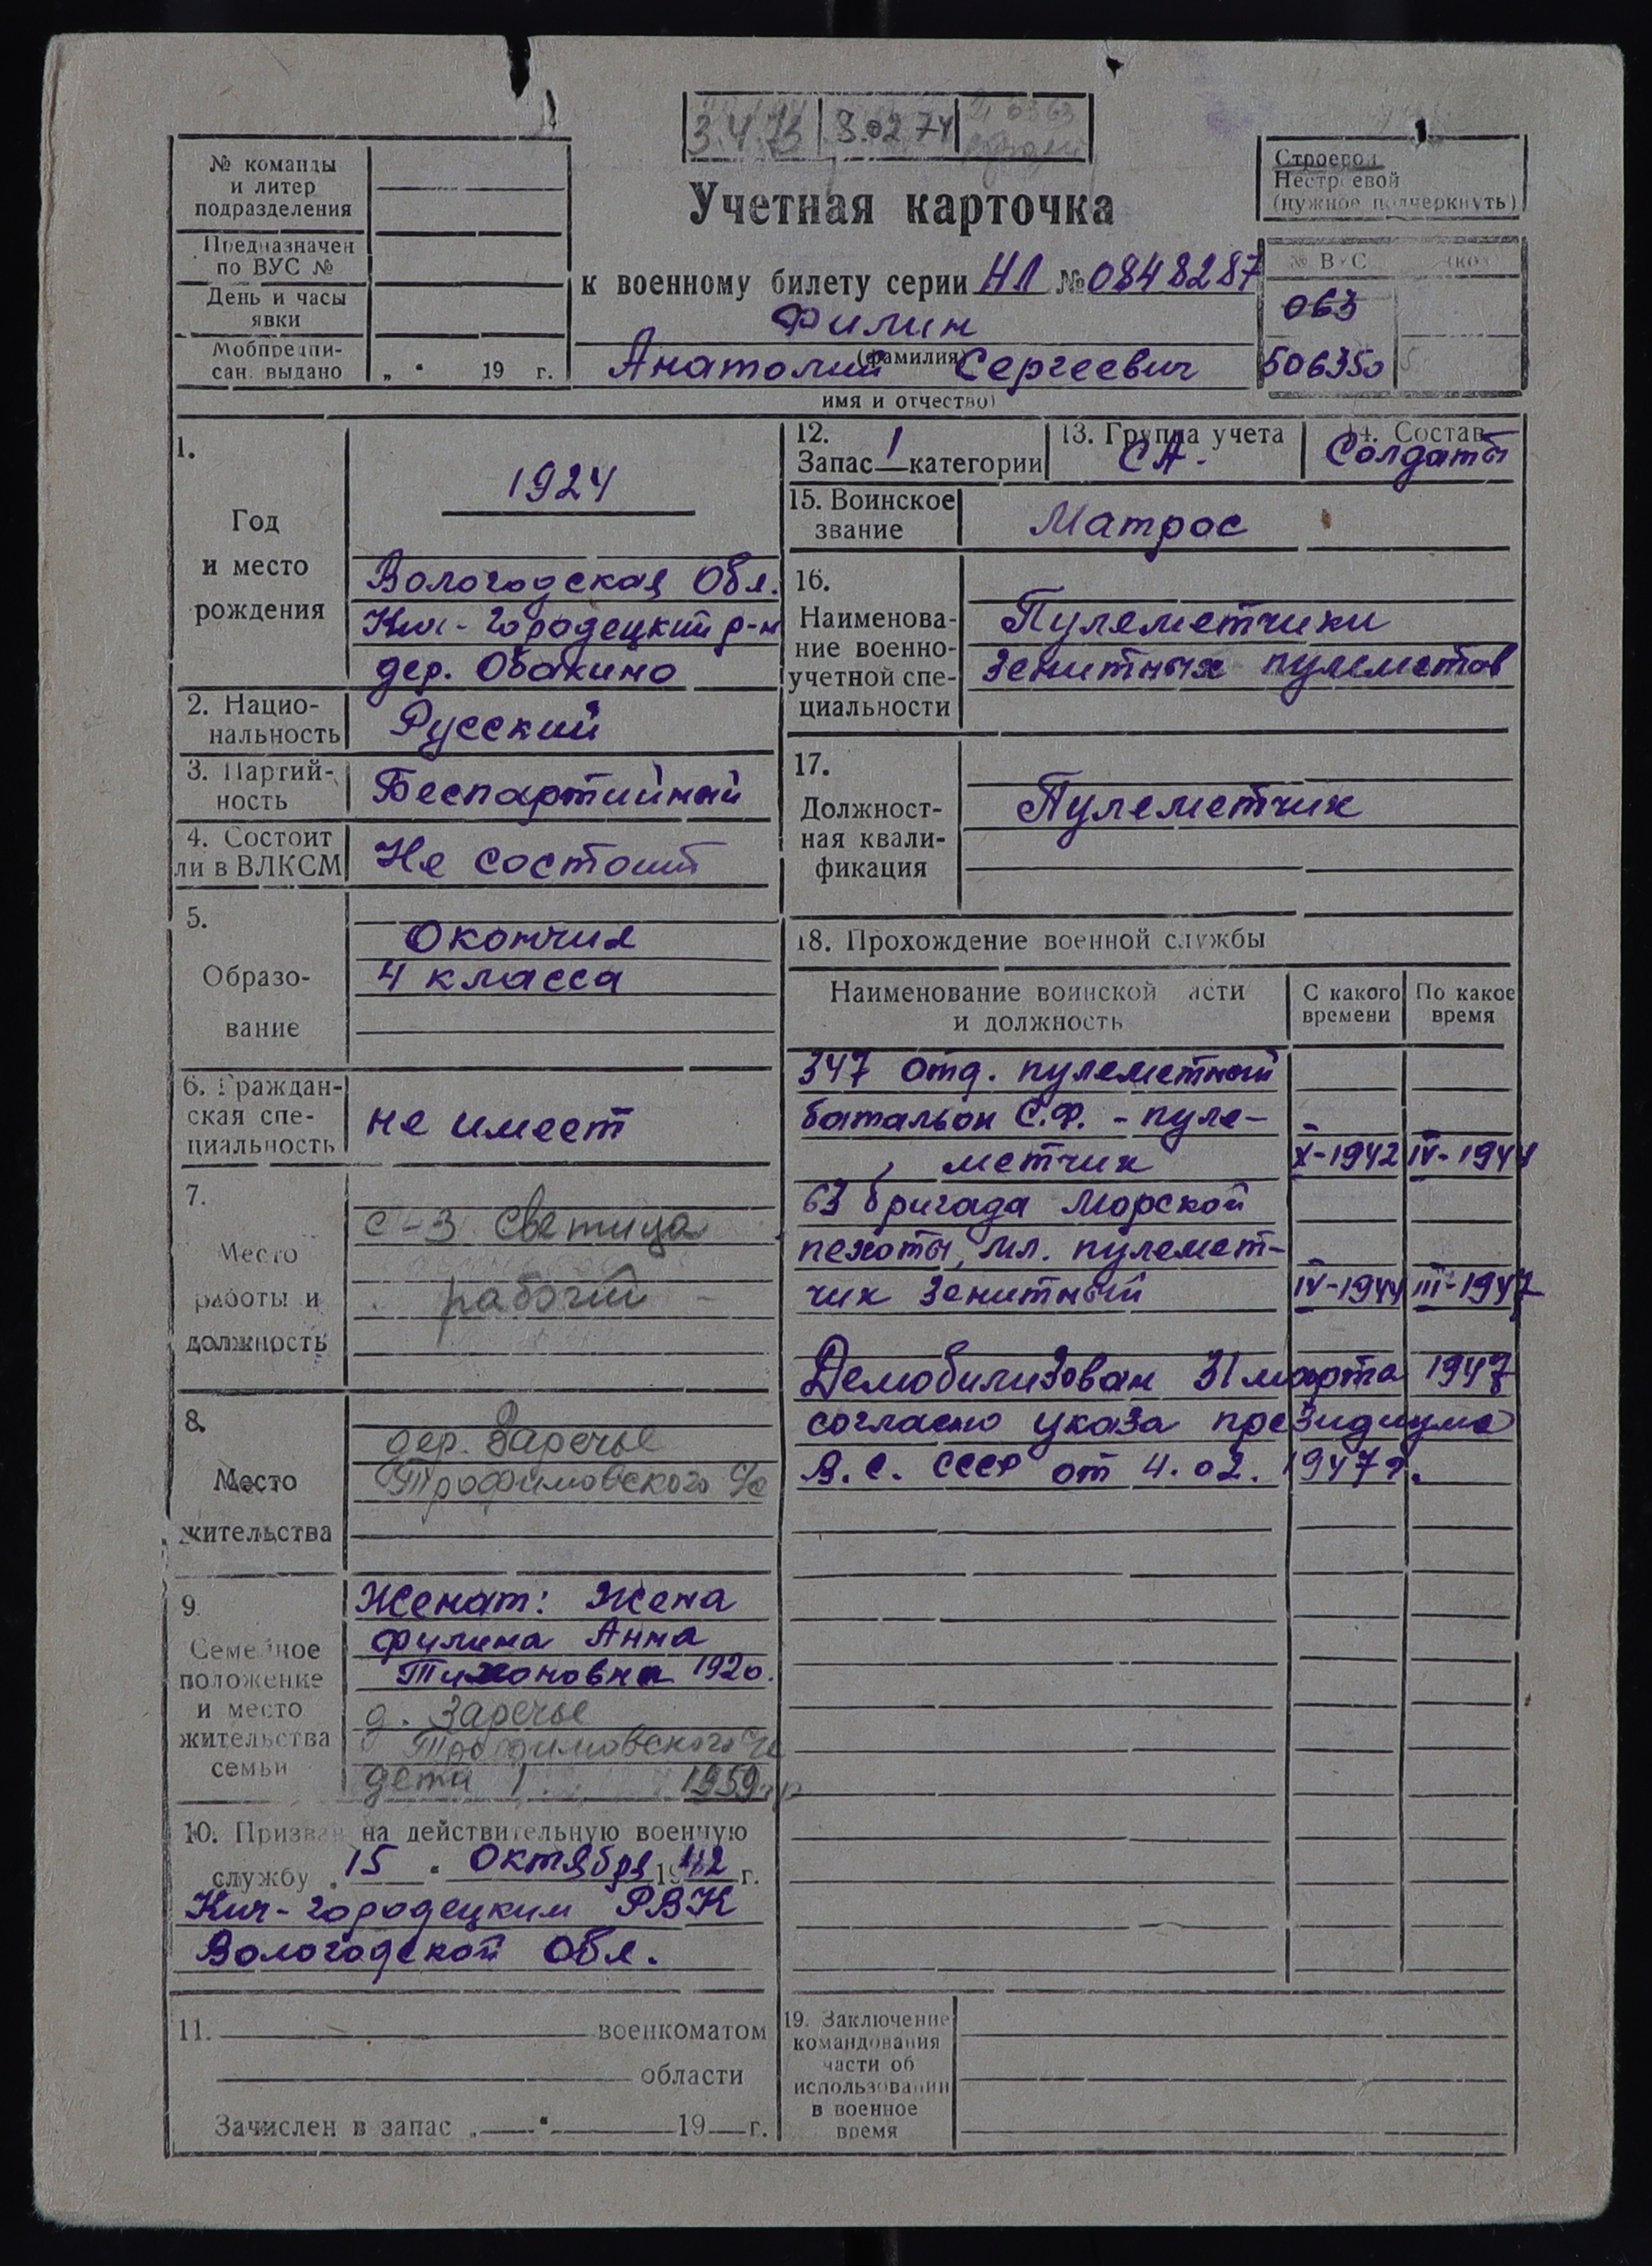 3.4.73 8.02 74
№ команды
и литер
подразделения
Предназначен
по ВУС №
День и часы
явки
Мобпредпи-
сан. выдано „ “ 19 г.
Учетная карточка
к военному билету серии НЛ № 0848287
Филин
(фамилия)
Анатолий Сергеевич
имя и отчество)
Строевой
Нестроевой
(нужное подчеркнуть)
№ ВУС
063
506350
1.
Год
и место
рождения
1924
Вологодская обл.
Кич-Городецкий р-н
дер. Обакино
2. Нацио-
нальность
Русский
3. Партий-
ность
Беспартийный
4. Состоит
ли в ВЛКСМ
Не состоит
5.
Образо-
вание
Окончил
4 класса
6. Граждан-
ская спе-
циальность
не имеет
7.
Место
работы и
должность
с-з Светица
рабочий
8.
Место
жительства
дер. Заречье
Трофимовского с/с
9.
Семейное
положение
и место
жительства
семьи
Женат: Жена
Филина Анна
Тихоновна 1920.
д. Заречье
Трофимовского с/с
дети 1 1959 гр
10. Призван на действительную военную
службу „ 15 “ Октября 1942 г.
Кич-Городецким РВК
Вологодской обл.
11. военкоматом
области
Зачислен в запас „ “ 19 г.
12.
Запас 1 категории
13. Группа учета
СА.
14. Состав
Солдаты
15. Воинское
звание
Матрос
16.
Наименова-
ние военно-
учетной спе-
циальности
Пулеметчики
зенитных пулеметов
17.
Должност-
ная квали-
фикация
Пулеметчик
18. Прохождение военной службы
Наименование воинской части
и должность
С какого
времени
По какое
время
347 отд. пулеметный
батальон С.Ф. - пуле-
метчик X-1942 IV-1944
63 бригада морской
пехоты, мл. пулемет-
чик зенитный IV-1944 III-1947
Демобилизован 31 марта 1947
согласно указа президиума
В.С. СССР от 4.02.1947 г.
19. Заключение
командования
части об
использовании
в военное
время